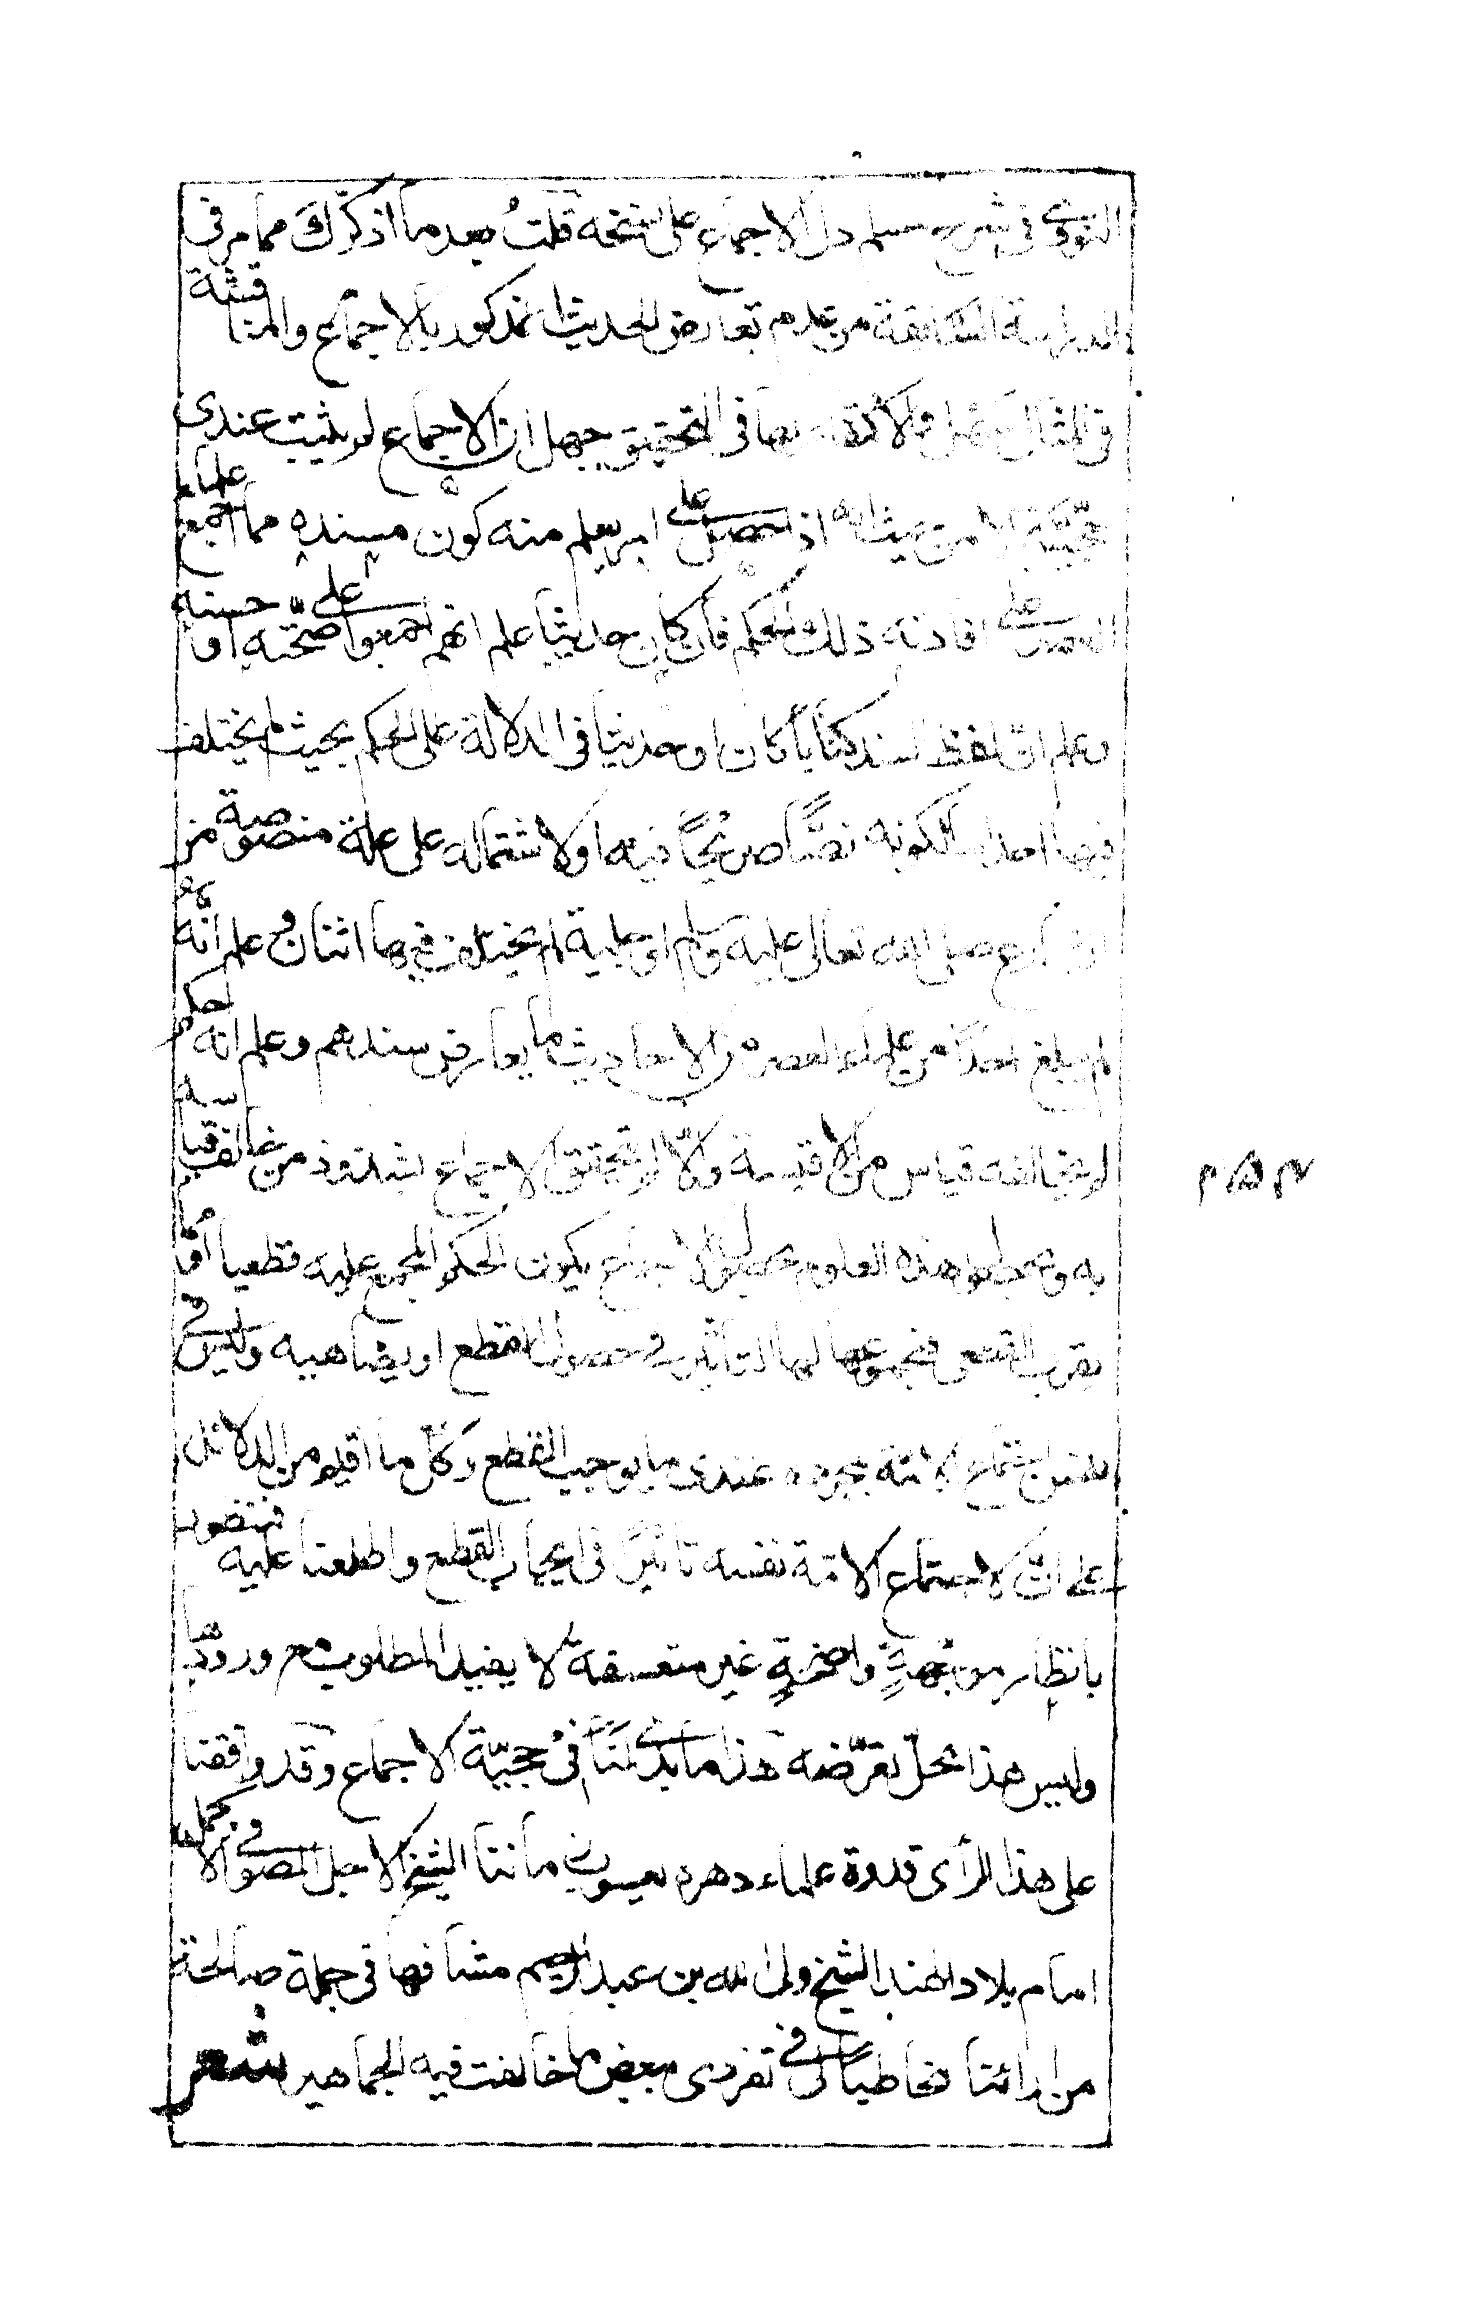 النووي في شرح مسلم دل الاجماع على نسخه قلت بعد ما اذكرك مما مر في
الدراسة السابقة من عدم تعارض الحديث المذكور بالاجماع والمناقشة
في المثال في التحقيق جهل ان الاجماع لم يثبت عندي
حجيته الا من حيث انه اذا حصل على امر يعلم منه كون مسنده مما اجمع علماء
العصر على افادته ذلك الحكم فان كان حديثا علم انهم اجمعوا على صحته او حسنه
وعلم ان لفظ السند كتابا كان او حديثا في الدلالة على الحكم بحيث لم يختلف
فيها احد اما لكونه نصًّا صريحًا فيه او لاشتماله على علة منصوصة من
الشارع صلى الله تعالى عليه وسلم او جلية لم يختلف فيها اثنان وعلم انه
لم يبلغ احدًا من علماء العصر من الاحاديث ما يعارض سندهم وعلم انه
لم يخالفه قياس من الاقيسة والا لم يتحقق الاجماع بشذوذ من خالف قياسه
به وبحصول هذه العلوم بحصول الاجماع يكون الحكم المجمع عليه قطعيا او ما
يقرب القطعي فمجموعها لها التأثير في حصول القطع او يضاهيه وليس في
نفس اجتماع الامة بمجرده عندي ما يوجب القطع وكل ما اقيم من الدلائل
على ان لاجتماع الامة نفسه تاثيرًا في ايجاب القطع واطلعنا عليه فمنقوض
بانظار موجهةٍ واضحةٍ غير متعسفة لا يفيد المطلوب مع ورودها
وليس هذا محل تعرّضه هذا ما بدى لنا في حجيّة الاجماع وقد وافقنا
على هذا الرأى قدوة علماء دهره يعسوب ماننا الشيخ الاجل الصوفي الاكمل
امام بلاد الهند الشيخ ولى الله بن عبد الرحيم مشافها في جملة صالحة
من ارائنا مخاطبا لى في تفردى ببعض ما خالفت فيه الجماهير شعر